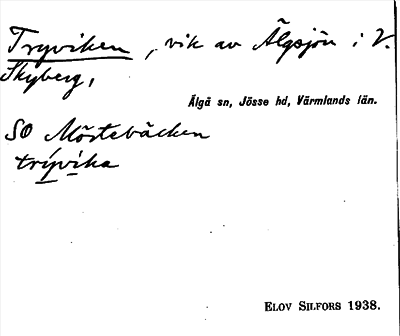 Tryviken, vik av Älgsjön i V.
Skyberg,
Älgå sn, Jösse hd, Värmlands län.
SO Möstebäcken
trívika
ELOV SILFORS 1938.